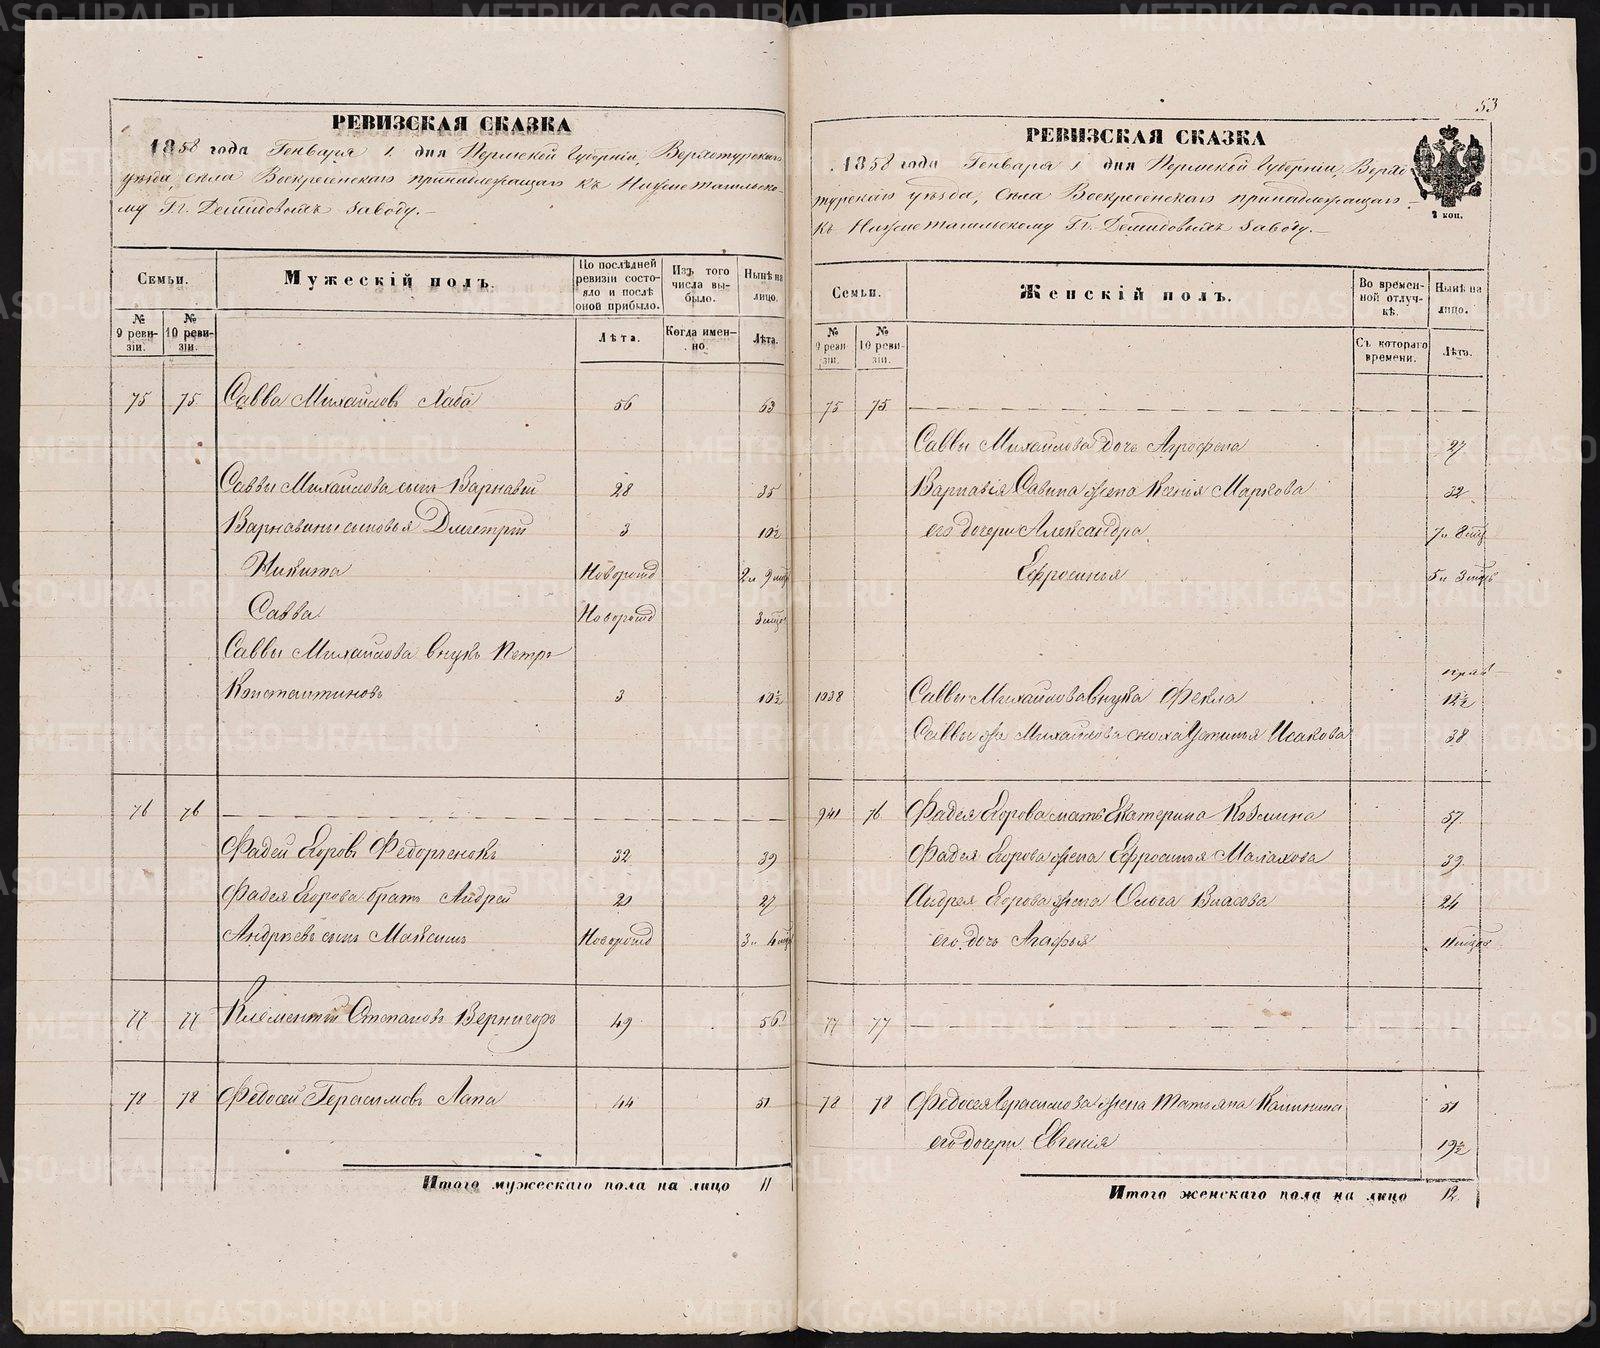 РЕВИЗСКАЯ СКАЗКА
1858 года Генваря 1. дня Пермской Губерніи, Верхотурскаго
уѣзда, села Воскресенскаго принадлежащаго къ Нижнетагильско-
му Гг. Демидовыхъ заводу.-
Семьи.
Мужескій полъ.
По послѣдней ревизіи состояло и послѣ оной прибыло.
Изъ того числа выбыло.
Нынѣ на лицо.
№ 9 ревизіи.
№ 10 ревизіи.
Лѣта.
Когда именно.
Лѣта.
75 75 Савва Михайловъ Хаба 56 63
Саввы Михайлова сынъ Варнавій 28 35
Варнавины сыновья Дмитрій 3 10½
Никита Новорожд 2 и 9 мцъ
Савва Новорожд 3 мцъ
Саввы Михайлова внукъ Петръ
Константиновъ 3 10½
76 76
Фадей Егоровъ Федорченокъ 32 39
Фадея Егорова братъ Андрей 20 27
Андреевъ сынъ Максимъ Новорожд 3 и 4 мцъ
77 77 Клементій Степановъ Вернигоръ 49 56
78 78 Федосей Герасимовъ Лапа 44 51
Итого мужескаго пола на лицо 11
53
РЕВИЗСКАЯ СКАЗКА
1858 года Генваря 1 дня Пермской Губерніи, Верхо
турскаго уѣзда, села Воскресенскаго принадлежащаго
къ Нижнетагильскому Гг. Демидовыхъ заводу.-
2 коп.
Семьи.
Женскій полъ.
Во временной отлучкѣ.
Нынѣ на лицо.
№ 9 ревизіи.
№ 10 ревизіи.
Съ котораго времени.
Лѣта.
75 75
Саввы Михайлова дочь Агрофена 27
Варнавія Савина жена Ксенія Маркова 32
его дочери Александра 7 и 8 мцъ
Ефросинья 5 и 3 мцъ
1038 Саввы Михайлова внучка Фекла 12½
Саввы же Михайлова сноха Устинья Исакова 38
941 76 Фадея Егорова мать Екатерина Козмина 57
Фадея Егорова жена Ефросинья Малахова 39
Андрея Егорова жена Ольга Власова 24
его дочь Агафья 11 мцъ
77 77
78 78 Федосея Герасимова жена Татьяна Калинина 51
его дочери Евгенія 19½
Итого женскаго пола на лицо 12
METRIKI.GASO-URAL.RU